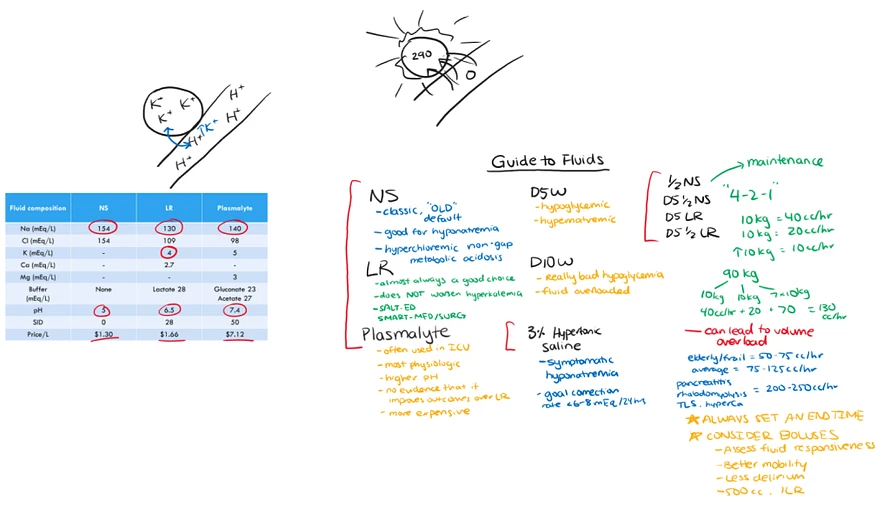 290
O
K+
K+
K+
H+
H+
H+
↑K+
H+
H+
Guide to Fluids
Fluid composition NS LR Plasmalyte
Na (mEq/L) 154 130 140
Cl (mEq/L) 154 109 98
K (mEq/L) - 4 5
Ca (mEq/L) - 2.7 -
Mg (mEq/L) - - 3
Buffer (mEq/L) None Lactate 28 Gluconate 23 Acetate 27
pH 5 6.5 7.4
SID 0 28 50
Price/L $1.30 $1.66 $7.12
NS
- classic, "OLD"
default
- good for hyponatremia
- hyperchloremic non-gap
metabolic acidosis
LR
- almost always a good choice
- does NOT worsen hyperkalemia
- SALT-ED
SMART-MED/SURG
Plasmalyte
- often used in ICU
- most physiologic
- higher pH
- no evidence that it
improves outcomes over LR
- more expensive
D5W
- hypoglycemic
- hypernatremic
D10W
- Really bad hypoglycemia
- fluid overloaded
3% Hypertonic
saline
- symptomatic
hyponatremia
- goal correction
rate <6-8 mEq/24hrs
1/2 NS
D5 1/2 NS
D5 LR
D5 1/2 LR
→ maintenance
"4-2-1"
10kg = 40cc/hr
10kg = 20cc/hr
↑10kg = 10cc/hr
90kg
10kg 10kg 7×10kg
40cc/hr + 20 + 70 = 130
cc/hr
- can lead to volume
overload
elderly/frail = 50-75cc/hr
average = 75-125cc/hr
pancreatitis
rhabdomyolysis = 200-250cc/hr
TLS, hyperca
★ ALWAYS SET AN END TIME
★ CONSIDER BOLUSES
- Assess fluid responsiveness
- Better mobility
- Less delirium
- 500cc, 1LR